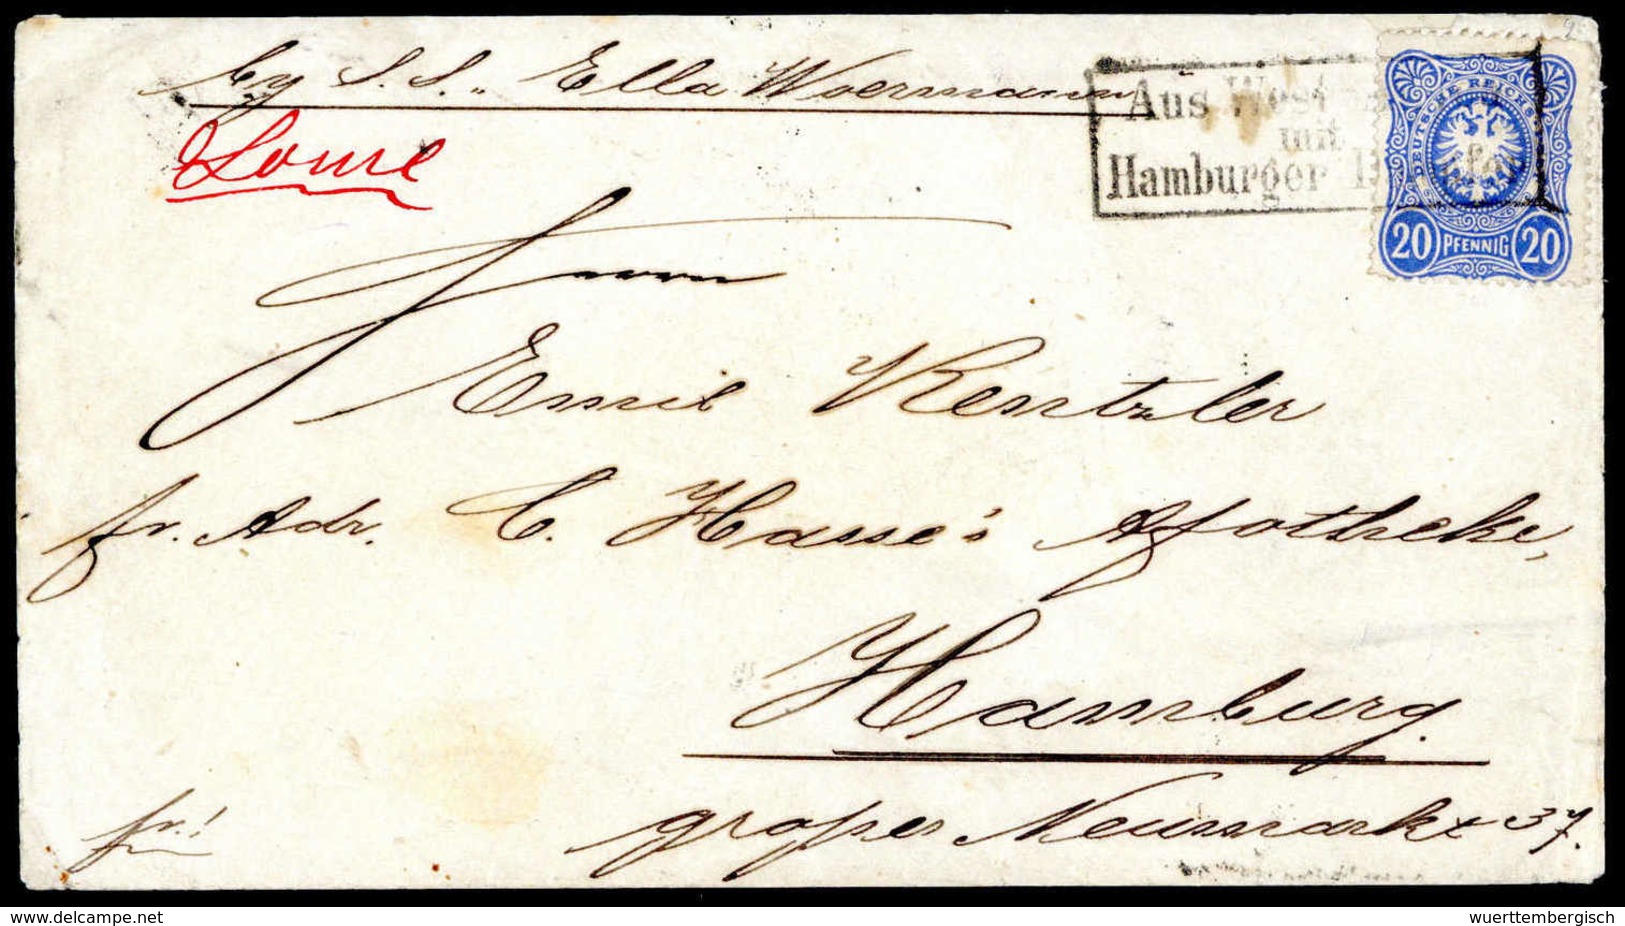 by S.S. „ Ella Woermann
Lome
Aus West
mit
Hamburger D
DEUTSCHE REICHS
20 PFENNIG 20
Herrn
Emil Kentzler
fr. Adr. C. Hasse's Apotheke,
Hamburg.
großer Neumarkt 37.
fr.!
www.delcampe.net
wuerttembergisch